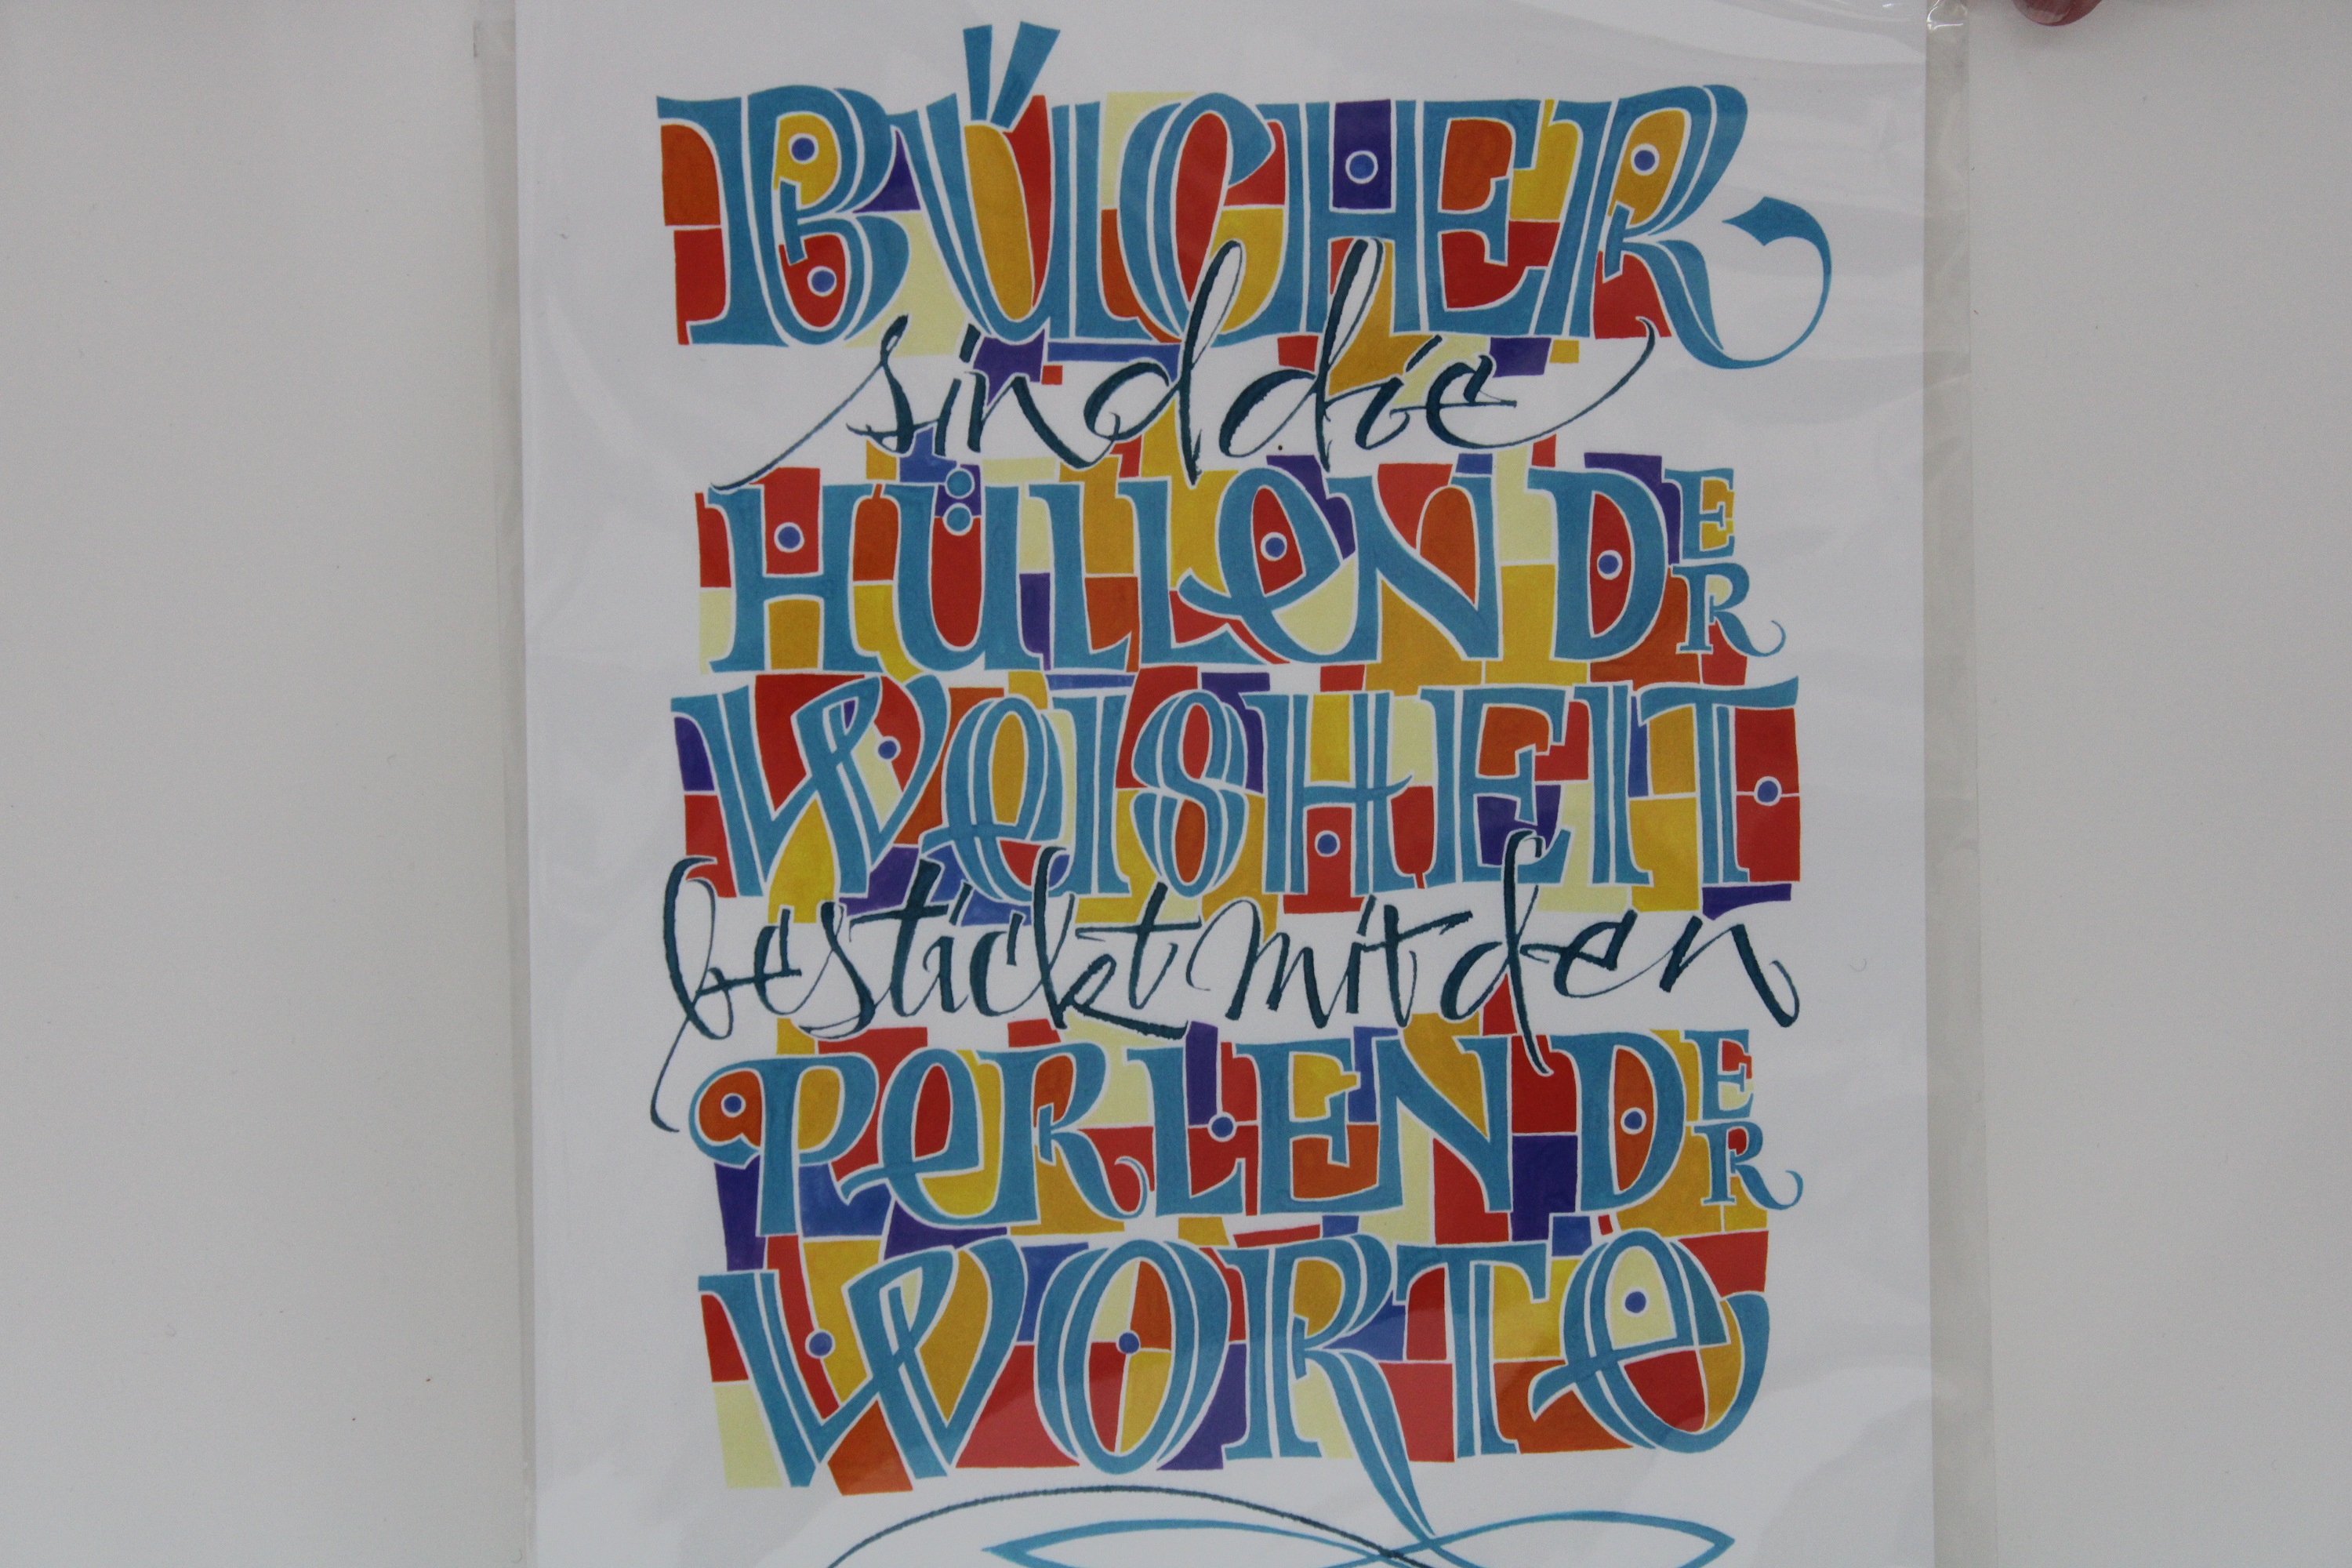 BÜCHER
sind die
HÜLLEN DER
WEISHEIT
bestickt mit den
PERLEN DER
WORTE